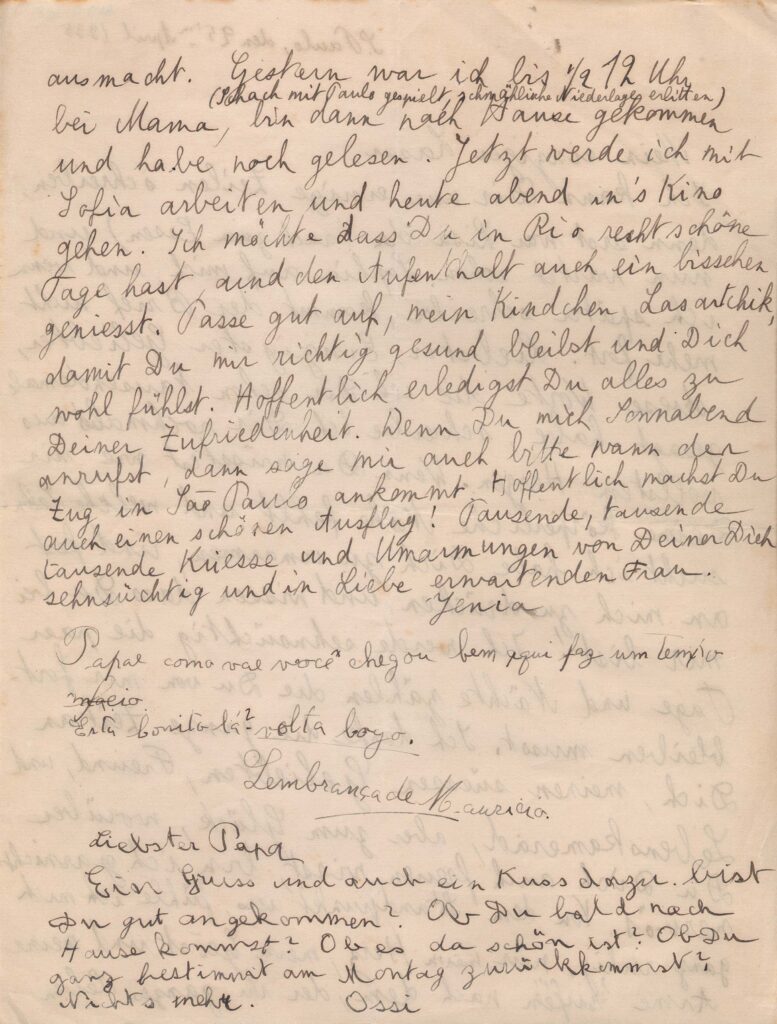 ausmacht. Gestern war ich bis 1/2 12 Uhr
(Schach mit Paulo gespielt, schmähliche Niederlage erlitten)
bei Mama, bin dann nach Hause gekommen
und habe noch gelesen. Jetzt werde ich mit
Sofia arbeiten und heute abend in's Kino
gehen. Ich möchte dass Du in Rio recht schöne
Tage hast und den Aufenthalt auch ein bisschen
geniesst. Passe gut auf, mein Kindchen Lasartchik,
damit Du mir richtig gesund bleibst und Dich
wohl fühlst. Hoffentlich erledigst Du alles zu
Deiner Zufriedenheit. Wenn Du mich Sonnabend
anrufst, dann sage mir auch bitte wann der
Zug in São Paulo ankommt. Hoffentlich machst Du
auch einen schönen Ausflug! Tausende, tausende
tausende Küesse und Umarmungen von Deiner Dich
sehnsüchtig und in Liebe erwartenden Frau.
Jenia
Papae como vae você chegou bem aqui faz um tempo
Está bonito lá? volta logo.
Lembrança de Mauricio.
Liebster Papa
Ein Gruss und auch ein Kuss dazu. bist
Du gut angekommen? Ob Du bald nach
Hause kommst? Ob es da schön ist? Ob Du
ganz bestimmt am Montag zurückkommst?
Nichts mehr. Ossi